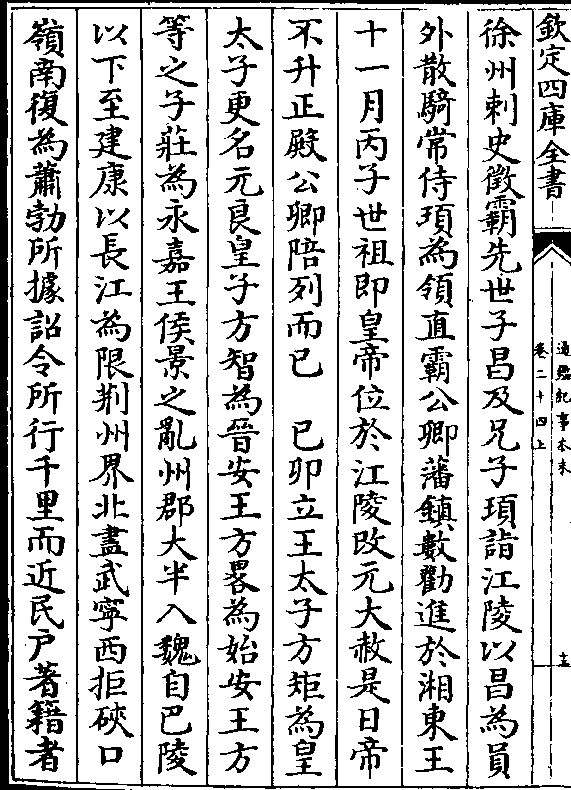 欽定四庫全書
通鑑紀事本末
卷二十四上
十五
徐州刺史徵霸先世子昌及兄子頊詣江陵以昌為員
外散騎常侍頊為領直霸公卿藩鎮數勸進於湘東王
十一月丙子世祖即皇帝位於江陵改元大赦是日帝
不升正殿公卿陪列而已　己卯立王太子方矩為皇
太子更名元良皇子方智為晉安王方畧為始安王方
等之子莊為永嘉王侯景之亂州郡大半入魏自巴陵
以下至建康以長江為限荆州界北盡武寧西拒硤口
嶺南復為蕭勃所據詔令所行千里而近民戶著籍者